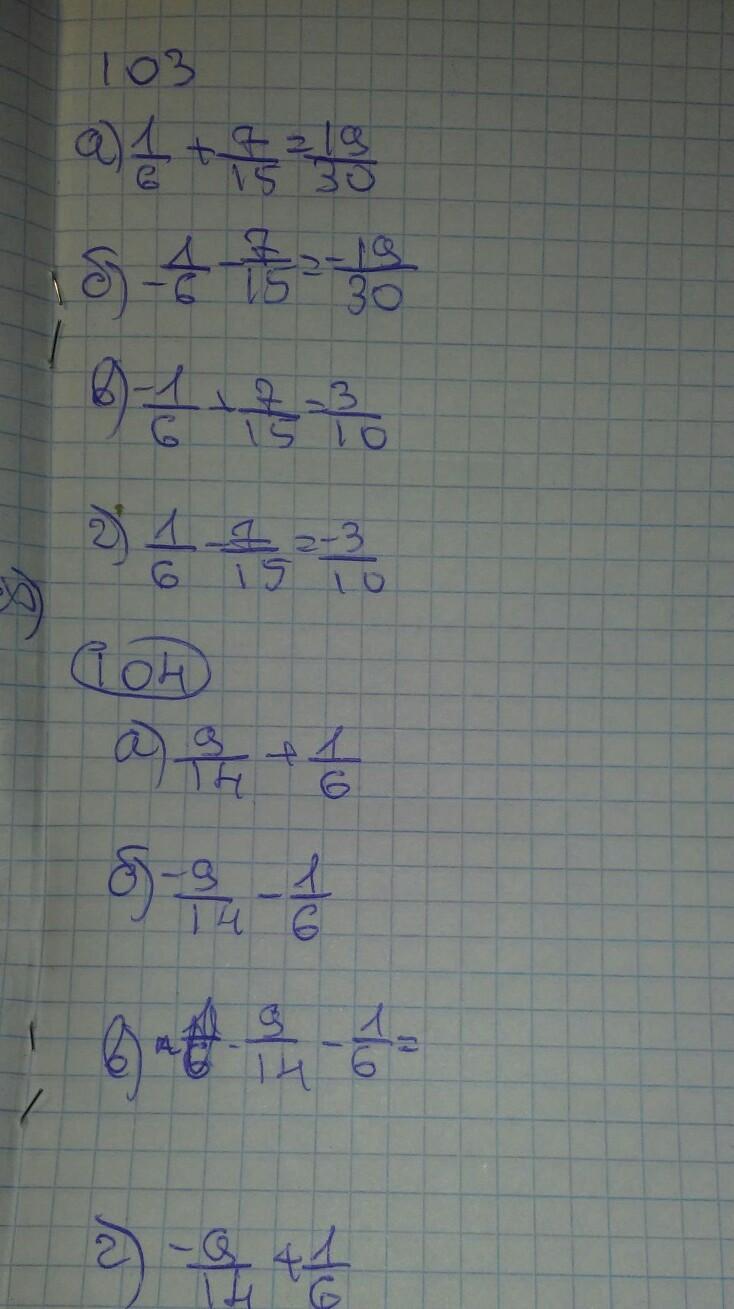 103
а) 1/6 + 7/15 = 19/30
б) -1/6 - 7/15 = -19/30
в) -1/6 + 7/15 = 3/10
г) 1/6 - 7/15 = -3/10
104
а) 9/14 + 1/6
б) -9/14 - 1/6
в) 9/14 - 1/6 =
г) -9/14 + 1/6